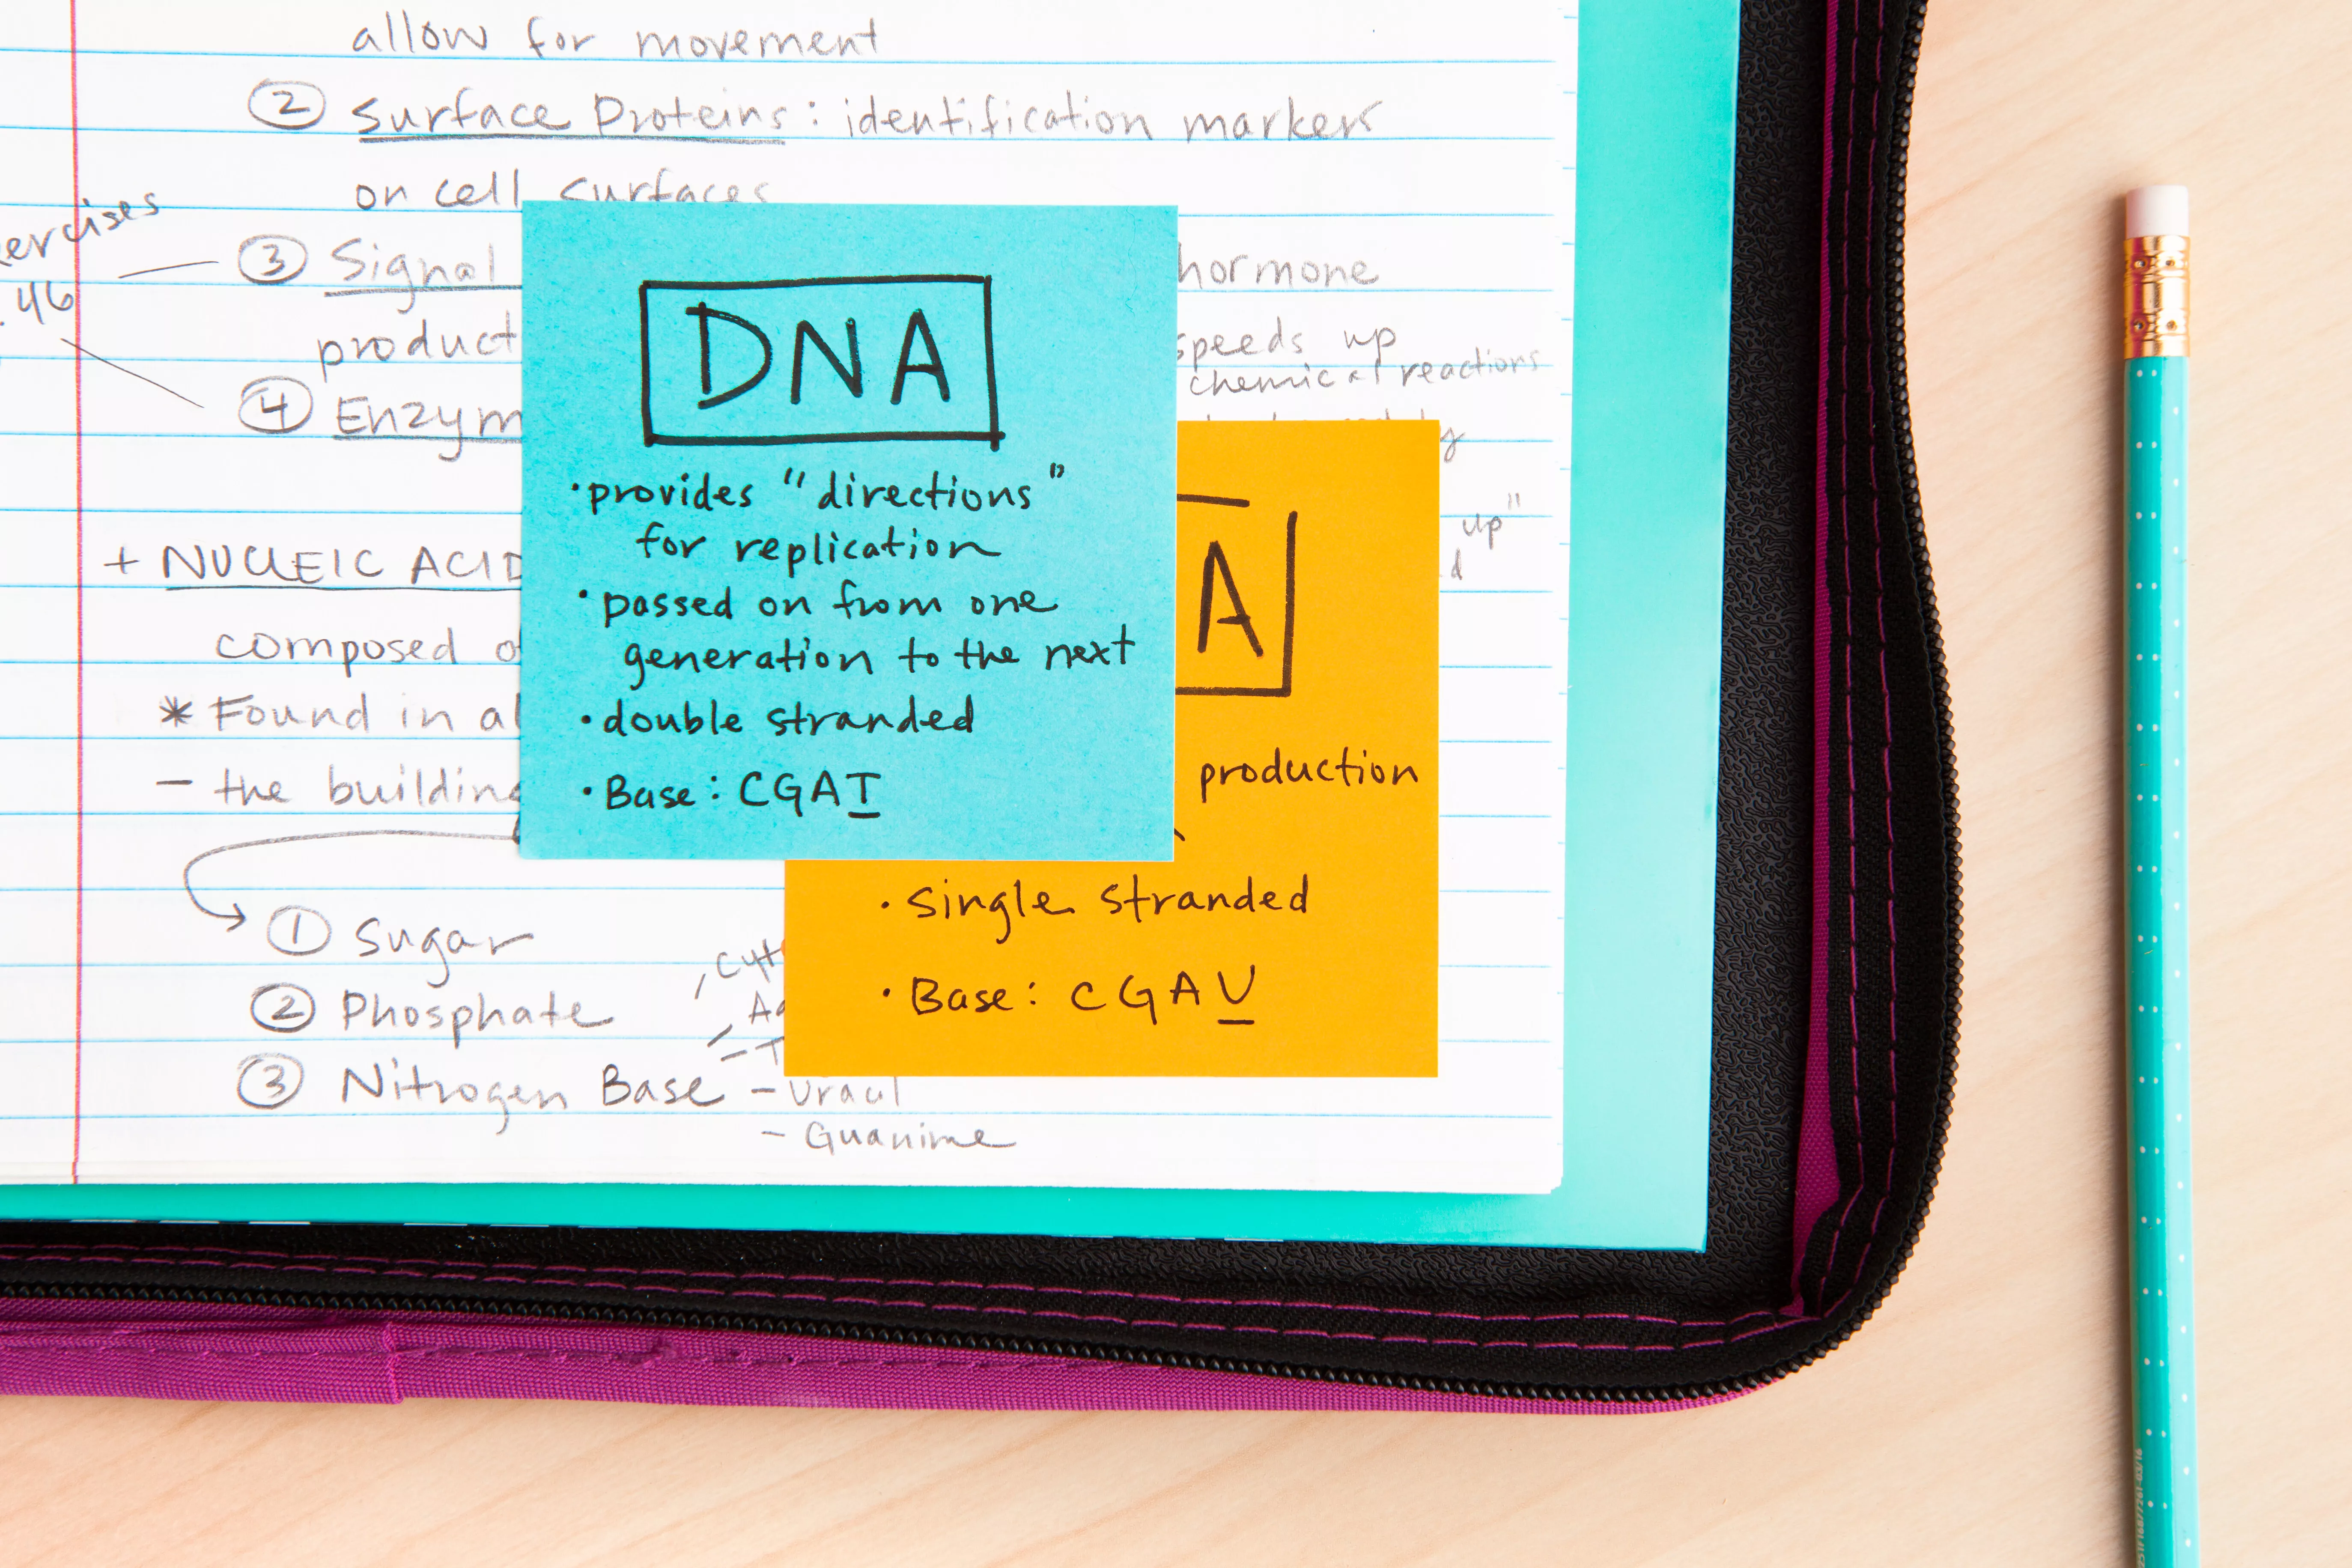 allow for movement
② Surface Proteins: identification markers
on cell surfaces
③ Signal
hormone
product
speeds up
chemical reactions
④
46
+ NUCLEIC
composed
up"
* Found in
- the
① Sugar
② Phosphate
③ Nitrogen Base
- Uracil
- Guanine
DNA
• provides "directions"
for replication
• passed on from one
generation to the next
• double stranded
• Base: CGAT
A
production
• single stranded
• Base: CGAU